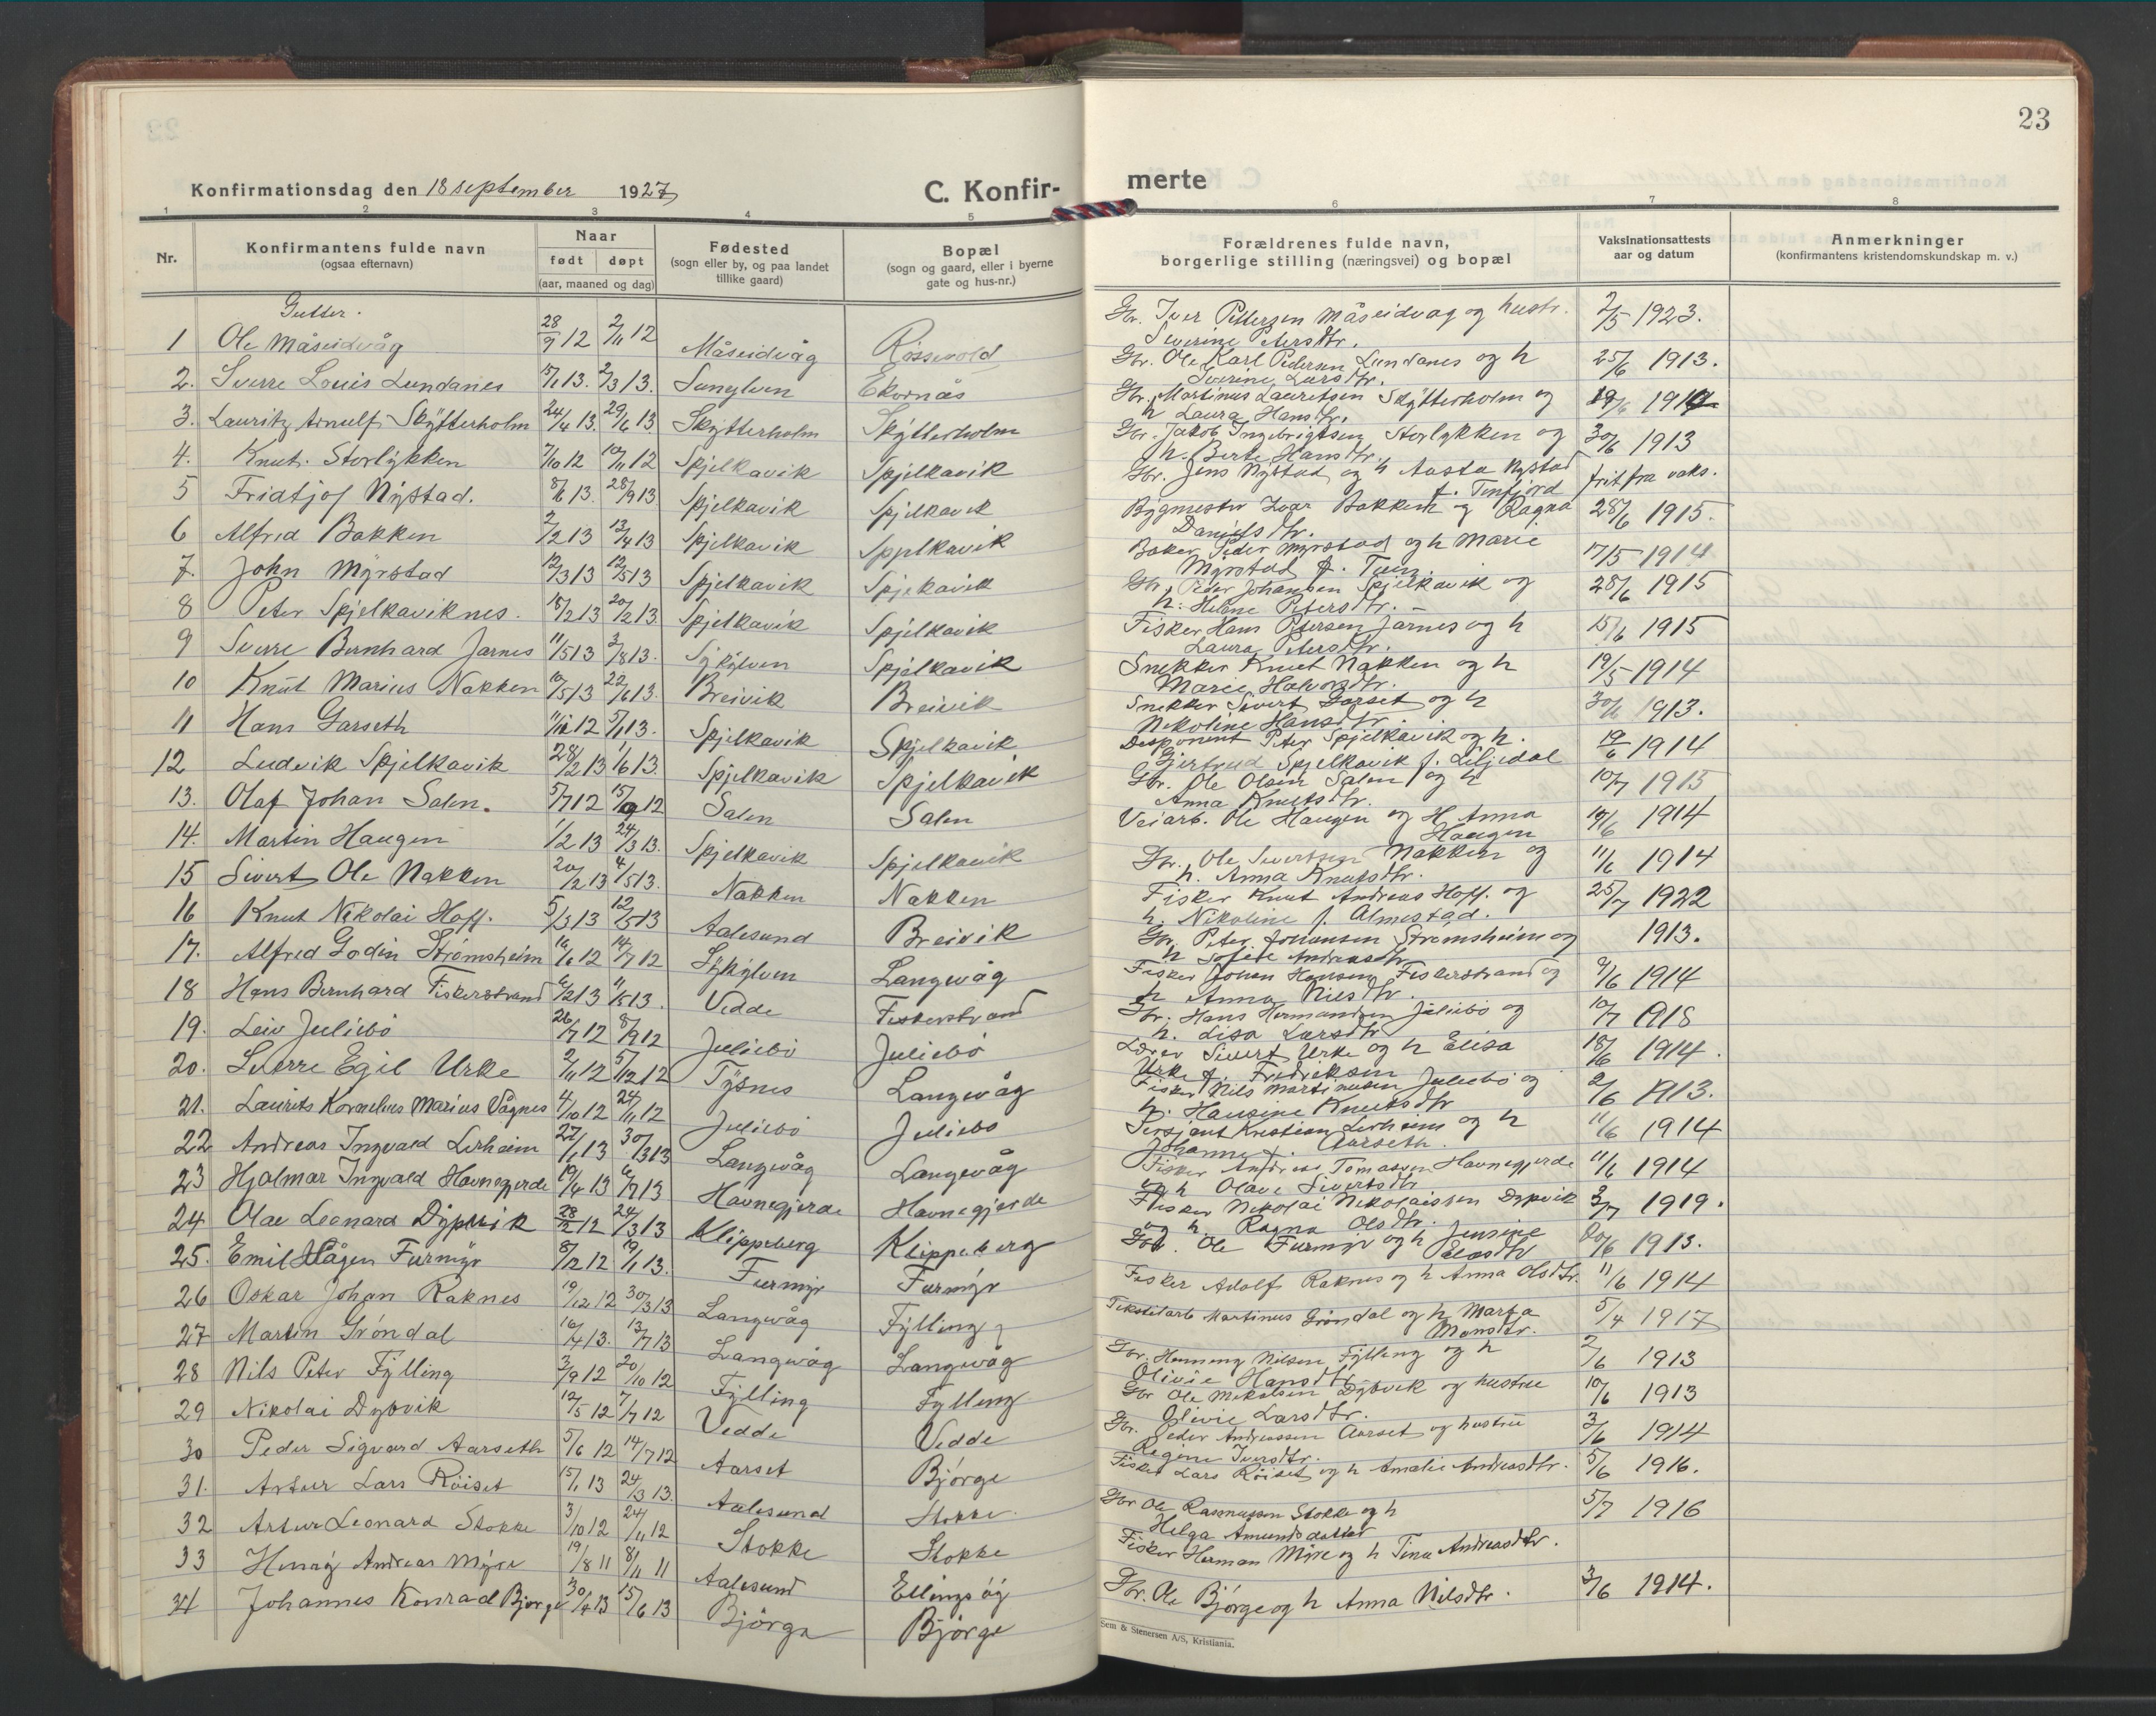 23
Konfirmationsdag den 18 september 1927
C. Konfir-
merte
1 2 3 4 5 6 7 8
Nr.
Konfirmantens fulde navn
(ogsaa efternavn)
Naar
født døpt
(aar, maaned og dag)
Fødested
(sogn eller by, og paa landet
tillike gaard)
Bopæl
(sogn og gaard, eller i byerne
gate og hus-nr.)
Forældrenes fulde navn,
borgerlige stilling (næringsvei) og bopæl
Vaksinationsattests
aar og datum
Anmerkninger
(konfirmantens kristendomskundskap m. v.)
Gutter.
1 Ole Måseidvåg 28/9 12 2/11 12 Måseidvåg Røssevold
2. Sverre Louis Lundanes 5/1 13. 2/3 13. Sunylven Ekornås
3. Lauritz Arnulf Skÿtterholm 24/4 13. 29/6 13. Skÿtterholm Skÿtterholm
4. Knut. Storlÿkken 7/10 12 10/11 12 Spjelkavik Spjelkavik
5 Fridtjof Nÿstad. 8/6 13. 28/9 13 Spjelkavik Spjelkavik
6 Alfred Bakken 2/2 13 13/4 13 Spjelkavik Spjelkavik
7. John Mÿrstad 12/3 13 12/5 13 Spjelkavik Spjekavik
8 Peter Spjelkaviknes. 18/2 13 20/12 13. Spjelkavik Spjelkavik
9 Sverre Bernhard Jarnes 11/5 13 3/8 13. Sÿkÿlven Spjelkavik
10 Knut Marius Nakken 10/5 13 22/6 13. Breivik Breivik
11 Hans Garseth 11/10 12 5/1 13. Spjelkavik Spjelkavik
12 Ludvik Spjelkavik 28/2 13 1/6 13. Spjelkavik Spjelkavik
13. Olaf Johan Salen. 5/7 12 15/9 12 Salen Salen
14. Martin Haugen 1/2 13 24/3 13. Spjelkavik Spjelkavik
15 Sivert Ole Nakken 20/2 13 4/5 13. Nakken Nakken
16 Knut Nikolai Hoff. 5/3 13 12/5 13 Aalesund Breivik
17. Alfred Godin Strømsheim 16/6 12 14/7 12 Sÿkÿlven Langevåg
18 Hans Bernhard Fiskerstrand 6/2 13 11/5 13. Vedde Fiskerstrand
19. Leiv Juliebø 26/7 12 8/9 12 Juliebø Juliebø
20. Sverre Egil Urke 2/11 12 5/12 12 Tÿsnes Langevåg
21. Laurits Kornelius Marius Vågnes 4/10 12 24/11 12 Juliebø Juliebø
22 Andreas Ingvald Lerheim 27/1 13 30/3 13 Langevåg Langevåg
23 Hjalmar Ingvald Havnegjerde 19/4 13 6/7 13 Havnegjerde Havnegjerde
24 Olav Leonard Dÿpvik 28/12 12 24/3 13 Klippeberg Klippeberg
25. Emil Hågen Furmÿr 8/12 12 19/1 13. Furmÿr Furmÿr
26 Oskar Johan Raknes 19/12 12 30/3 13 Langevåg Fÿlling
27 Martin Grøndal 16/4 13. 13/7 13 Langevåg Langevåg
28 Nils Peter Fÿlling 3/9 12 20/10 12 Fÿlling Fÿlling
29 Nikolai Dÿbvik 12/5 12 7/7 12 Vedde Vedde
30 Peder Sigvard Aarseth 5/6 12 14/7 12 Aarset Bjørge
31. Artur Lars Røiset 15/1 13 24/3 13. Aalesund Stokke
32 Artur Leonard Stokke 3/10 12 24/11 12 Stokke Stokke
33 Henrÿ Andreas Mÿre 19/8 11 8/11 11 Aalesund Ellingsøÿ
34 Johannes Konrad Bjørge 30/4 13 15/6 13 Bjørge Bjørge
Gbr. Iver Pettersen Måseidvag og hustr. 2/5 1923.
Severine Petersdtr.
Gbr. Ole Karl Pedersen Lundanes og h 25/6 1913.
Severine Larsdtr.
Gbr. Martinus Lauritsen Skÿtterholm og
h Laura Hansdtr.
Gbr. Jakob Ingebrigtsen Storlykken og 30/6 1913
h. Berte Hansdtr.
Gbr. Jens Nÿstad og h Aasta Nystad frit fra vaks.
f. Tenfjord
Bygmester Ivar Bakken og Ragna 28/6 1915.
Danielsdtr.
Baker Peder Myrstad og h Marie 17/5 1914
Mÿrstad f. Tuen.
Gbr. Peder Johansen Spjelkavik og 28/6 1915
h. Helene Petersdtr.
Fisker Hans Petersen Jarnes og h 15/6 1915
Laura Petersdtr.
Snekker Knut Nakken og h 19/5 1914
Marie Halvorsdtr.
Snekker Sivert Garset og h 30/6 1913.
Nekoline Hansdtr.
Desponent Peter Spjelkavik og h. 19/6 1914
Gjertrud Spjelkavik f. Liljedal
Gbr. Ole Olsen Salen og h 10/7 1913
Anna Knutsdtr.
Veiarb. Ole Haugen og H Anna 14/6 1914
Haugen
Gbr. Ole Sivertsen Nakken og 11/6 1914
h. Anna Knutsdtr.
Fisker Knut Andreas Hoff. og 25/7 1922
h. Nikoline f. Almestad.
Gbr. Peter Johansen Strømsheim og 1913.
h Sofie Andreasdtr
Fisker Johan Hansen Fiskerstrand og 9/6 1914
h Anna Nilsdtr.
Gbr. Hans Hermandsen Juliebø og 10/7 1918
h. Lisa Larsdtr
Lærer Sivert Urke og h Elisa 18/6 1914.
Urke f. Fredriksen
Fisker Nils Martinusen Juliebø og 2/6 1913.
h. Hansine Knutsdtr
Sersjant Kristian Lerheim og h 11/6 1914
Johanne f. Aarseth.
Fisker Andreas Tomassen Havnegjerde 11/6 1914
og h Olave Sivertsdtr
Fisker Nikolai Nikolaissen Dypvik 3/7 1919.
og h. Ragna Olsdtr.
Gbr. Ole Furmyr og h Jensine 20/6 1913.
Elasdtr
Fisker Adolf Raknes og h Anna Olsdtr. 11/6 1914
Tekstilarb Martinus Grøndal og h Marta 5/4 1917
Monsdtr.
Gbr. Henning Nilsen Fÿlling og h 2/6 1913
Olivie Hansdtr
Gbr Ole Mikalsen Dÿbvik og hustru 10/6 1913
Olivie Larsdtr.
Gbr. Peder Andreassen Aarset og hustru 3/6 1914
Regine Iversdtr.
Fisker Lars Røiset og h Amalie Andreasdtr. 5/6 1916.
Gbr Ole Rasmussen Stokke og h 5/7 1916
Helga Amundsdatter
Fisker Herman Mÿre og h Tina Andreasdtr.
Gbr. Ole Bjørge og h Anna Nilsdtr. 3/6 1914.
Sem & Stenersen A/S, Kristiania.